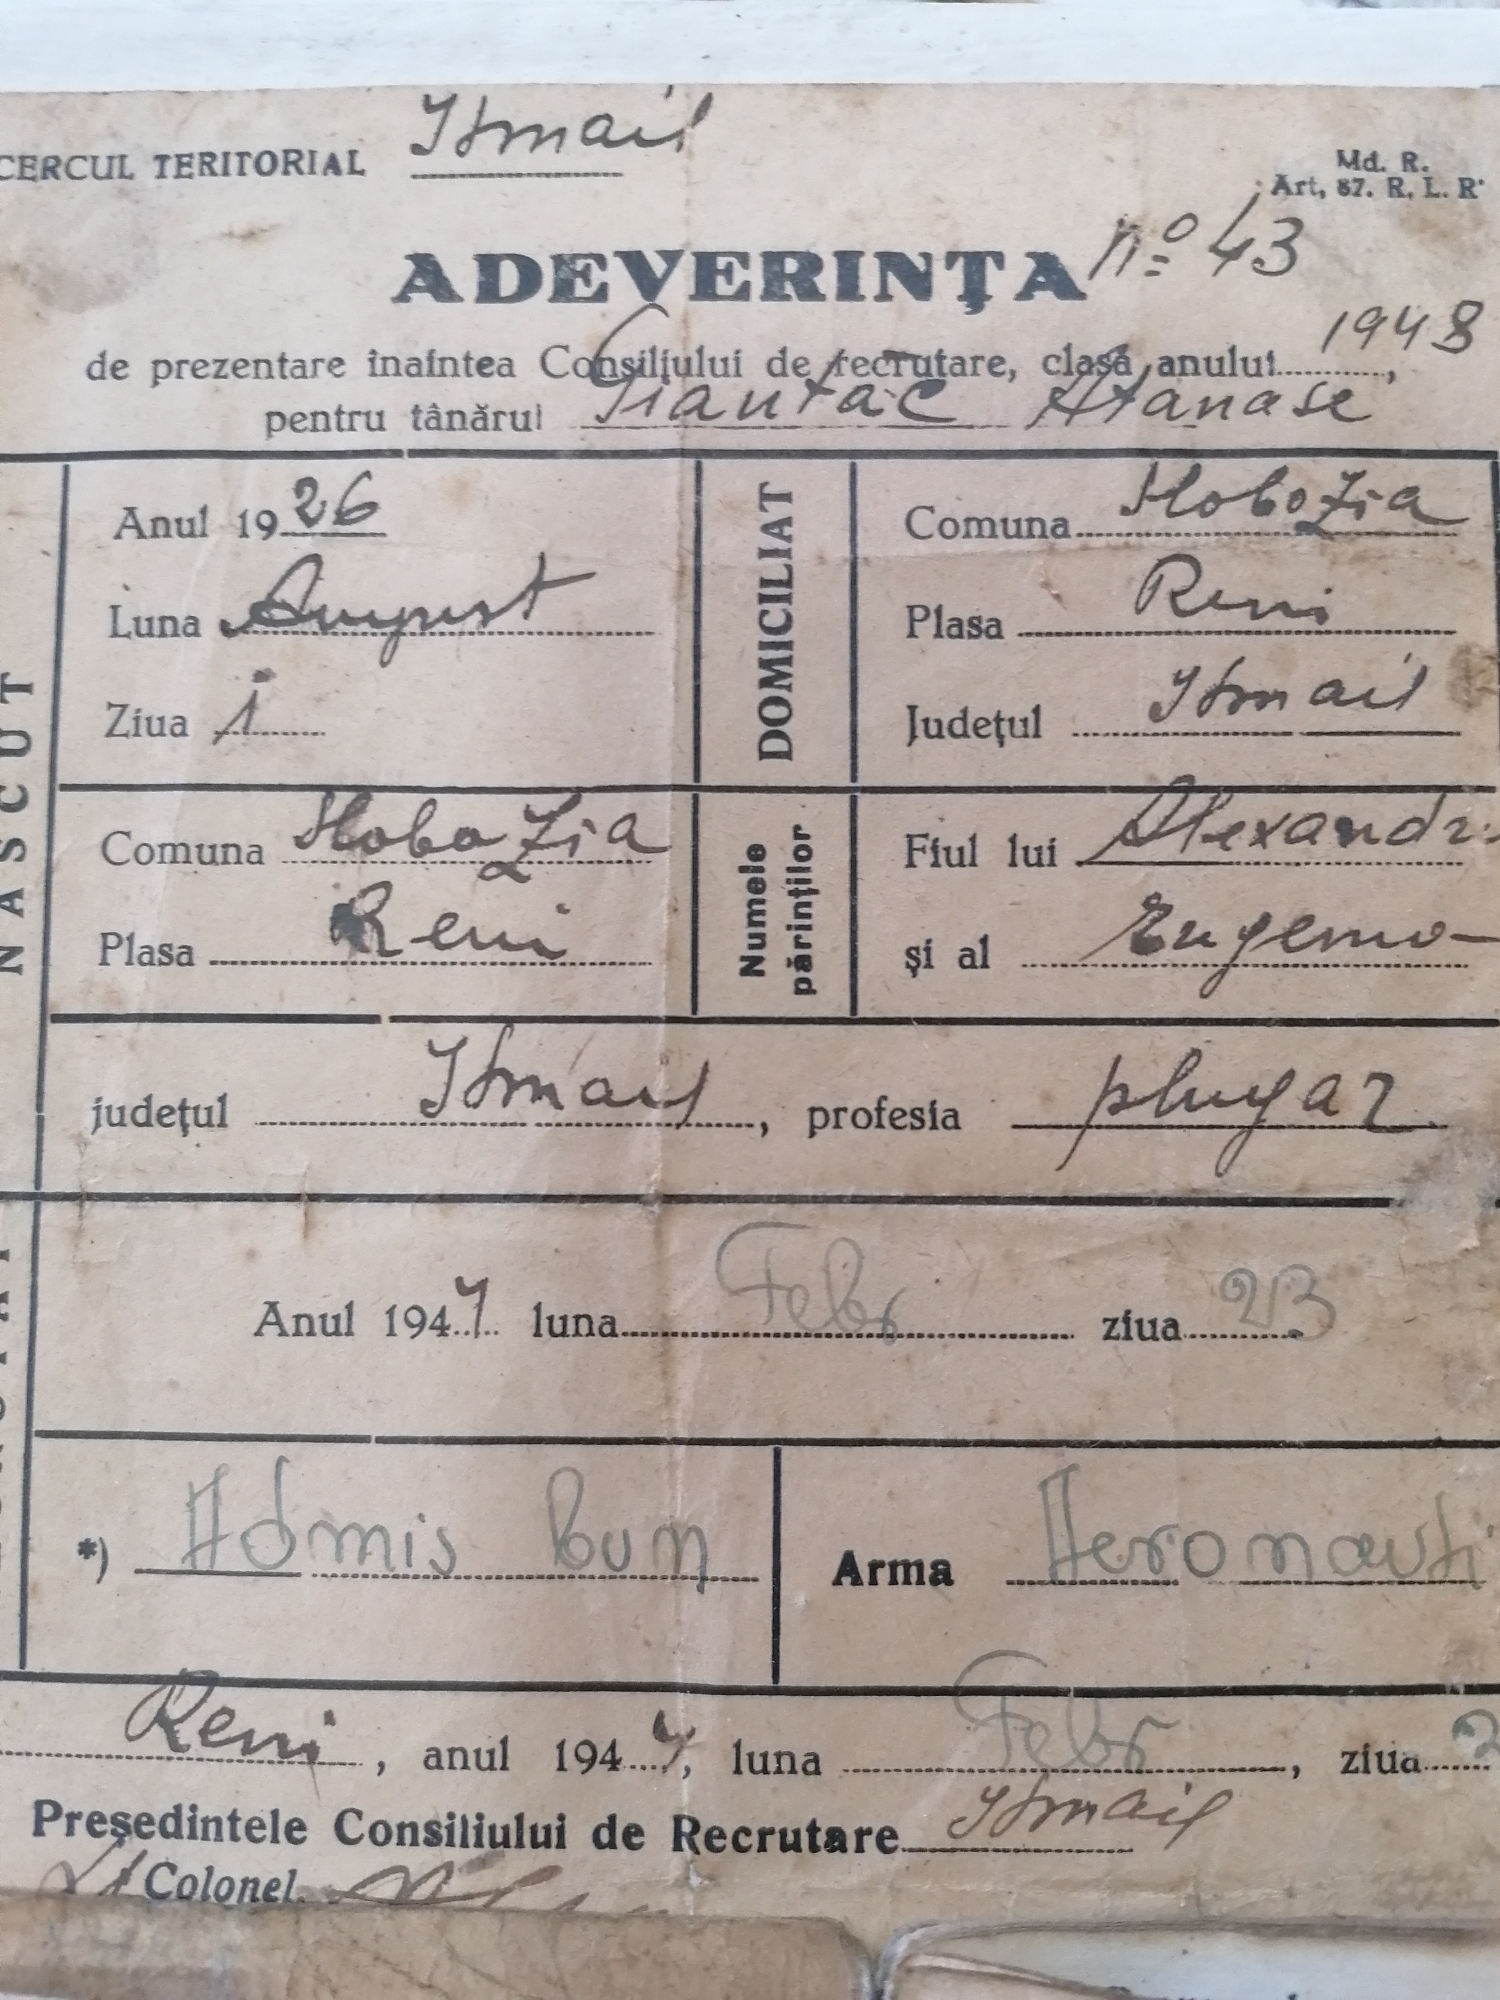 CERCUL TERITORIAL Ismail
Md. R.
Art, 87. R. L. R
ADEVERINŢA nº 43
de prezentare înaintea Consiliului de recrutare, clasa anului 1948,
pentru tânărul Atanase
NASCUT
Anul 1926
Luna August
Ziua 1
DOMICILIAT
Comuna Slobozia
Plasa Reni
Judeţul Ismail
Comuna Slobozia
Plasa Reni
Numele părinţilor
Fiul lui Alexandr
şi al Eugenio
judeţul Ismail, profesia plugar
Anul 194 luna Febr ziua 23
*) Admis bun
Arma Aeronauti
Reni, anul 194, luna Febr, ziua 2
Preşedintele Consiliului de Recrutare Ismail
Lt Colonel,